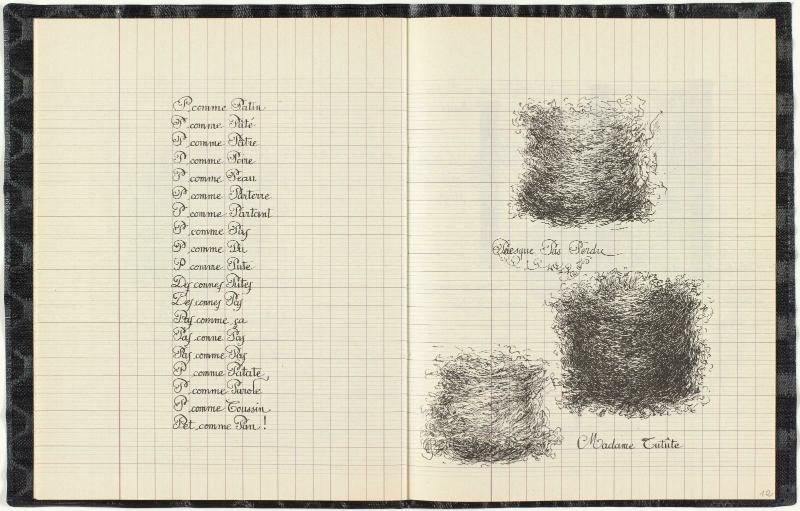 P comme Patin
P comme Pâté
P comme Pâtre
P comme Poire
P comme Peau
P comme Parterre
P comme Partant
P comme Pas
P comme Du
P comme Pute
Des connes Putes
Des connes Pas
Pas comme ça
Pas comme Pas
Pas comme Pas
P comme Patate
P comme Parole
P comme Toussin
Pet comme Pan !
Presque Pas Perdu
Madame Tutûte
12